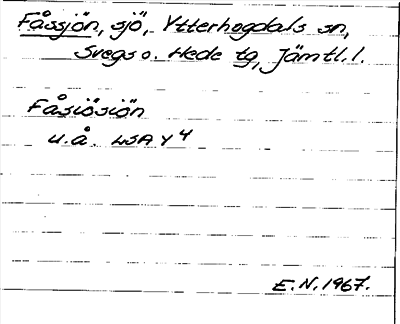 Fåssjön, sjö, Ytterhogdals sn,
Svegs o. Hede tg, Jämtl. l.
Fåsiösiön
u.å. LSA Y 4
E.N. 1967.